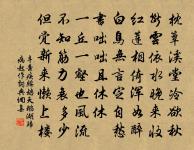 枕簟溪堂冷欲秋
斷雲依水晚來收
紅蓮相倚渾如醉
白鳥無言定自愁
書咄咄且休休
一丘一壑也風流
不知筋力衰多少
但覺新來懶上樓
辛棄疾鷓鴣天鵝湖歸
病起作